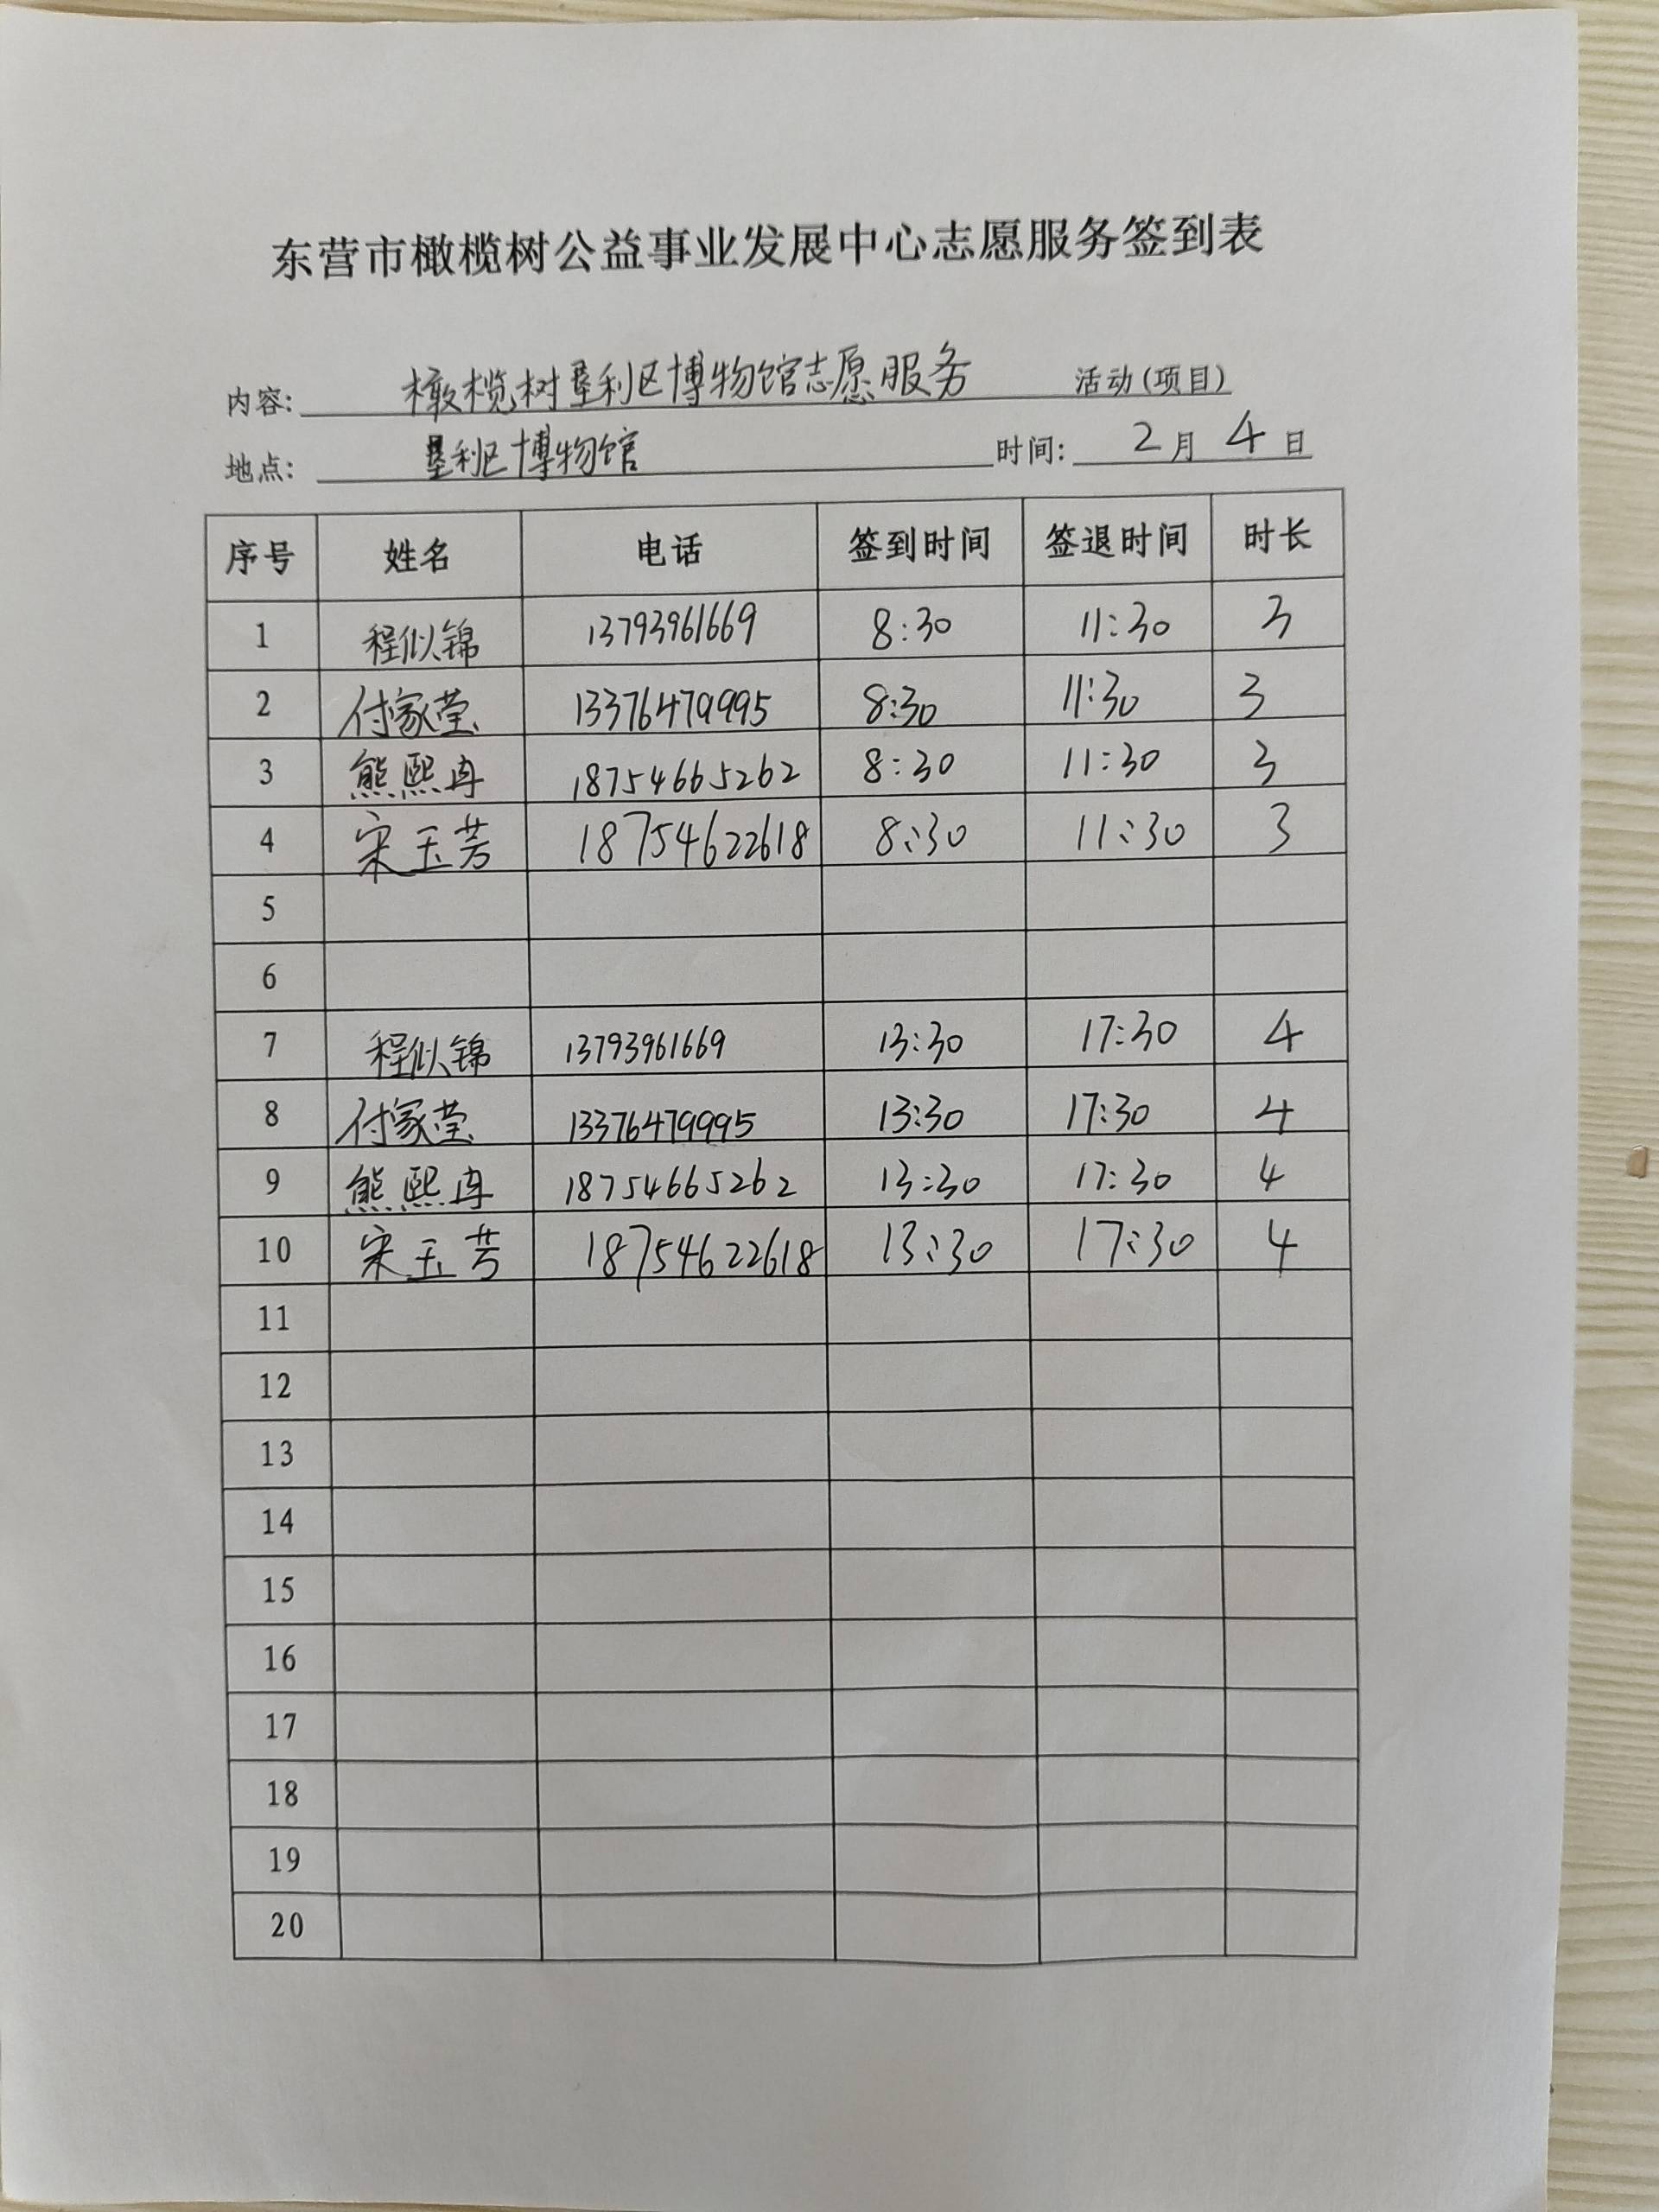 东营市橄榄树公益事业发展中心志愿服务签到表
内容: 橄榄树垦利区博物馆志愿服务 活动(项目)
地点: 垦利区博物馆 时间: 2月4日
序号 姓名 电话 签到时间 签退时间 时长
1 程似锦 13793961669 8:30 11:30 3
2 付家莹 13376479995 8:30 11:30 3
3 熊熙冉 18754665262 8:30 11:30 3
4 宋玉芳 18754622618 8:30 11:30 3
5
6
7 程似锦 13793961669 13:30 17:30 4
8 付家莹 13376479995 13:30 17:30 4
9 熊熙冉 18754665262 13:30 17:30 4
10 宋玉芳 18754622618 13:30 17:30 4
11
12
13
14
15
16
17
18
19
20